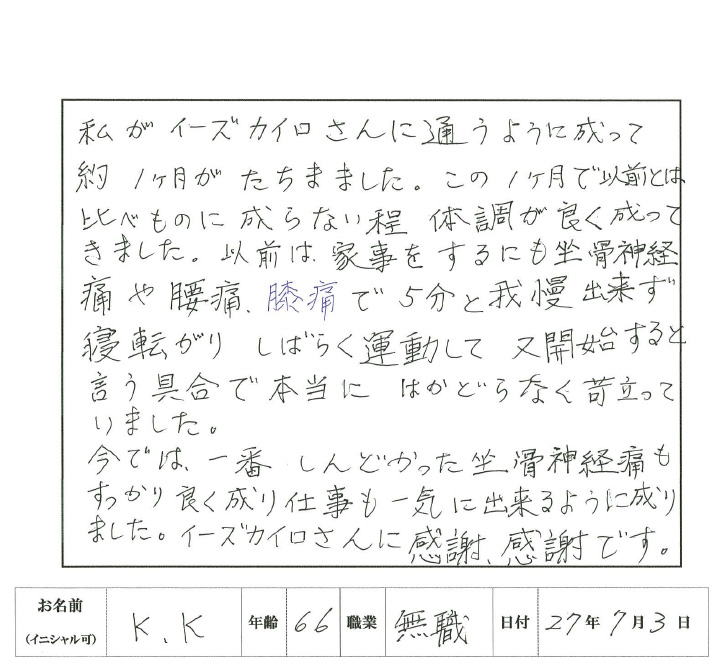 私がイーズカイロさんに通うように成って
約1ヶ月がたちまました。この1ヶ月で以前とは
比べものに成らない程 体調が良く成って
きました。以前は、家事をするにも坐骨神経
痛や腰痛、膝痛で5分と我慢出来ず
寝転がり しばらく運動して 又開始すると
言う具合で本当に はかどらなく苛立って
いました。
今では、一番 しんどかった坐骨神経痛も
すっかり良く成り仕事も一気に出来るように成り
ました。イーズカイロさんに感謝、感謝です。
お名前 (イニシャル可) K.K 年齢 66 職業 無職 日付 27年7月3日